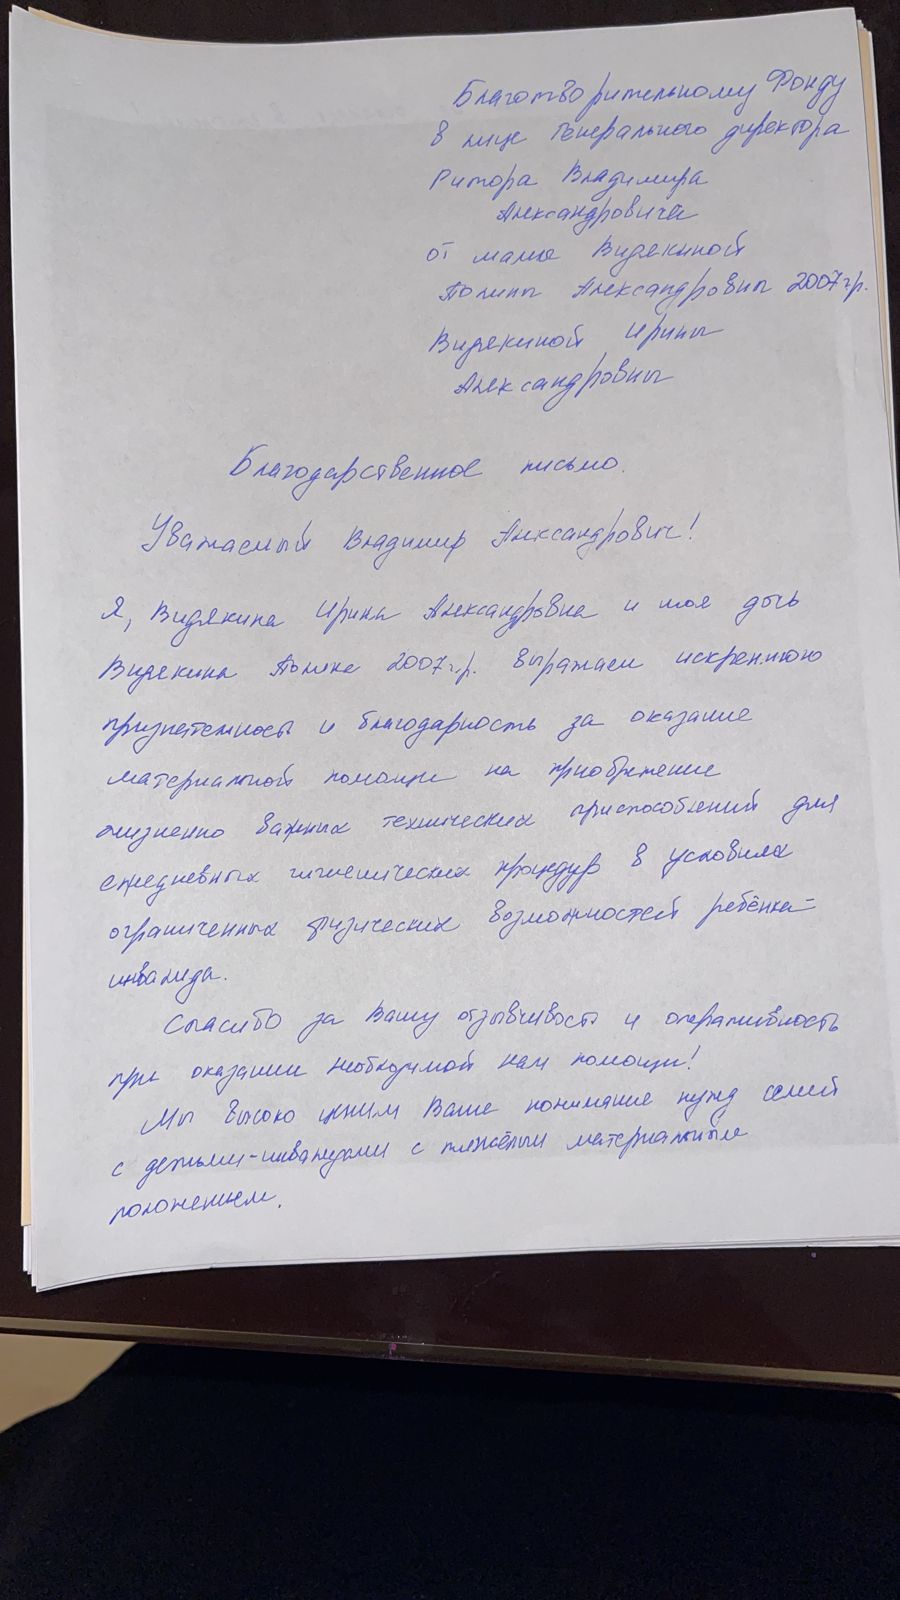 Благотворительному Фонду
в лице Генерального директора
Ритора Владимира
Александровича
от мамы Видякиной
Полины Александровны 2007г.р.
Видякиной Ирины
Александровны
Благодарственное письмо.
Уважаемый Владимир Александрович!
Я, Видякина Ирина Александровна и моя дочь
Видякина Полина 2007г.р. выражаем искреннюю
признательность и благодарность за оказание
материальной помощи на приобретение
жизненно важных технических приспособлений для
ежедневных гигиенических процедур в условиях
ограниченных физических возможностей ребёнка-
инвалида.
Спасибо за Вашу отзывчивость и оперативность
при оказании необходимой нам помощи!
Мы высоко ценим Ваше понимание нужд семей
с детьми-инвалидами с тяжёлым материальным
положением.